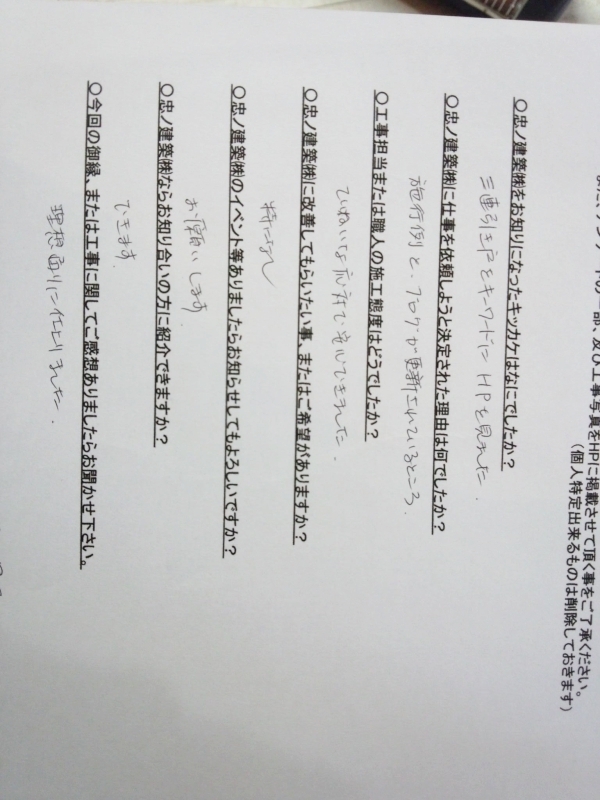 部、及び工事写真をHPに掲載させて頂く事をご了承ください。
(個人特定出来るものは削除しておきます)
○忠ノ建築㈱をお知りになったキッカケはなにでしたか?
三連引き戸をキーワードに HPを見ました.
○忠ノ建築㈱に仕事を依頼しようと決定された理由は何でしたか?
施行例と、ブログが更新されているところ.
○工事担当または職人の施工態度はどうでしたか?
ていねいな応対で安心できました.
○忠ノ建築㈱に改善してもらいたい事、またはご希望がありますか?
特になし
○忠ノ建築㈱のイベント等ありましたらお知らせしてもよろしいですか?
お願いします
○忠ノ建築㈱ならお知り合いの方に紹介できますか?
できます.
○今回の御縁、または工事に関してご感想ありましたらお聞かせ下さい。
理想通りに仕上りました.